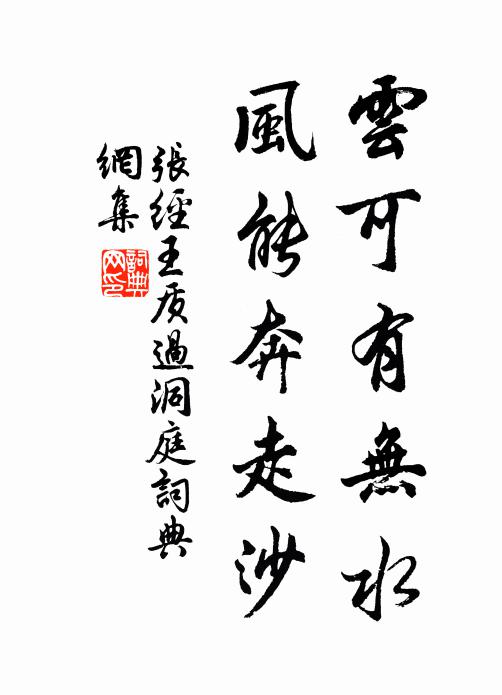 雲可有無水
風能奔走沙
張經王质過洞庭詞典
網集
詞典
网印